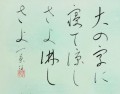 大の字に
寝て涼し
さよ淋し
さよ